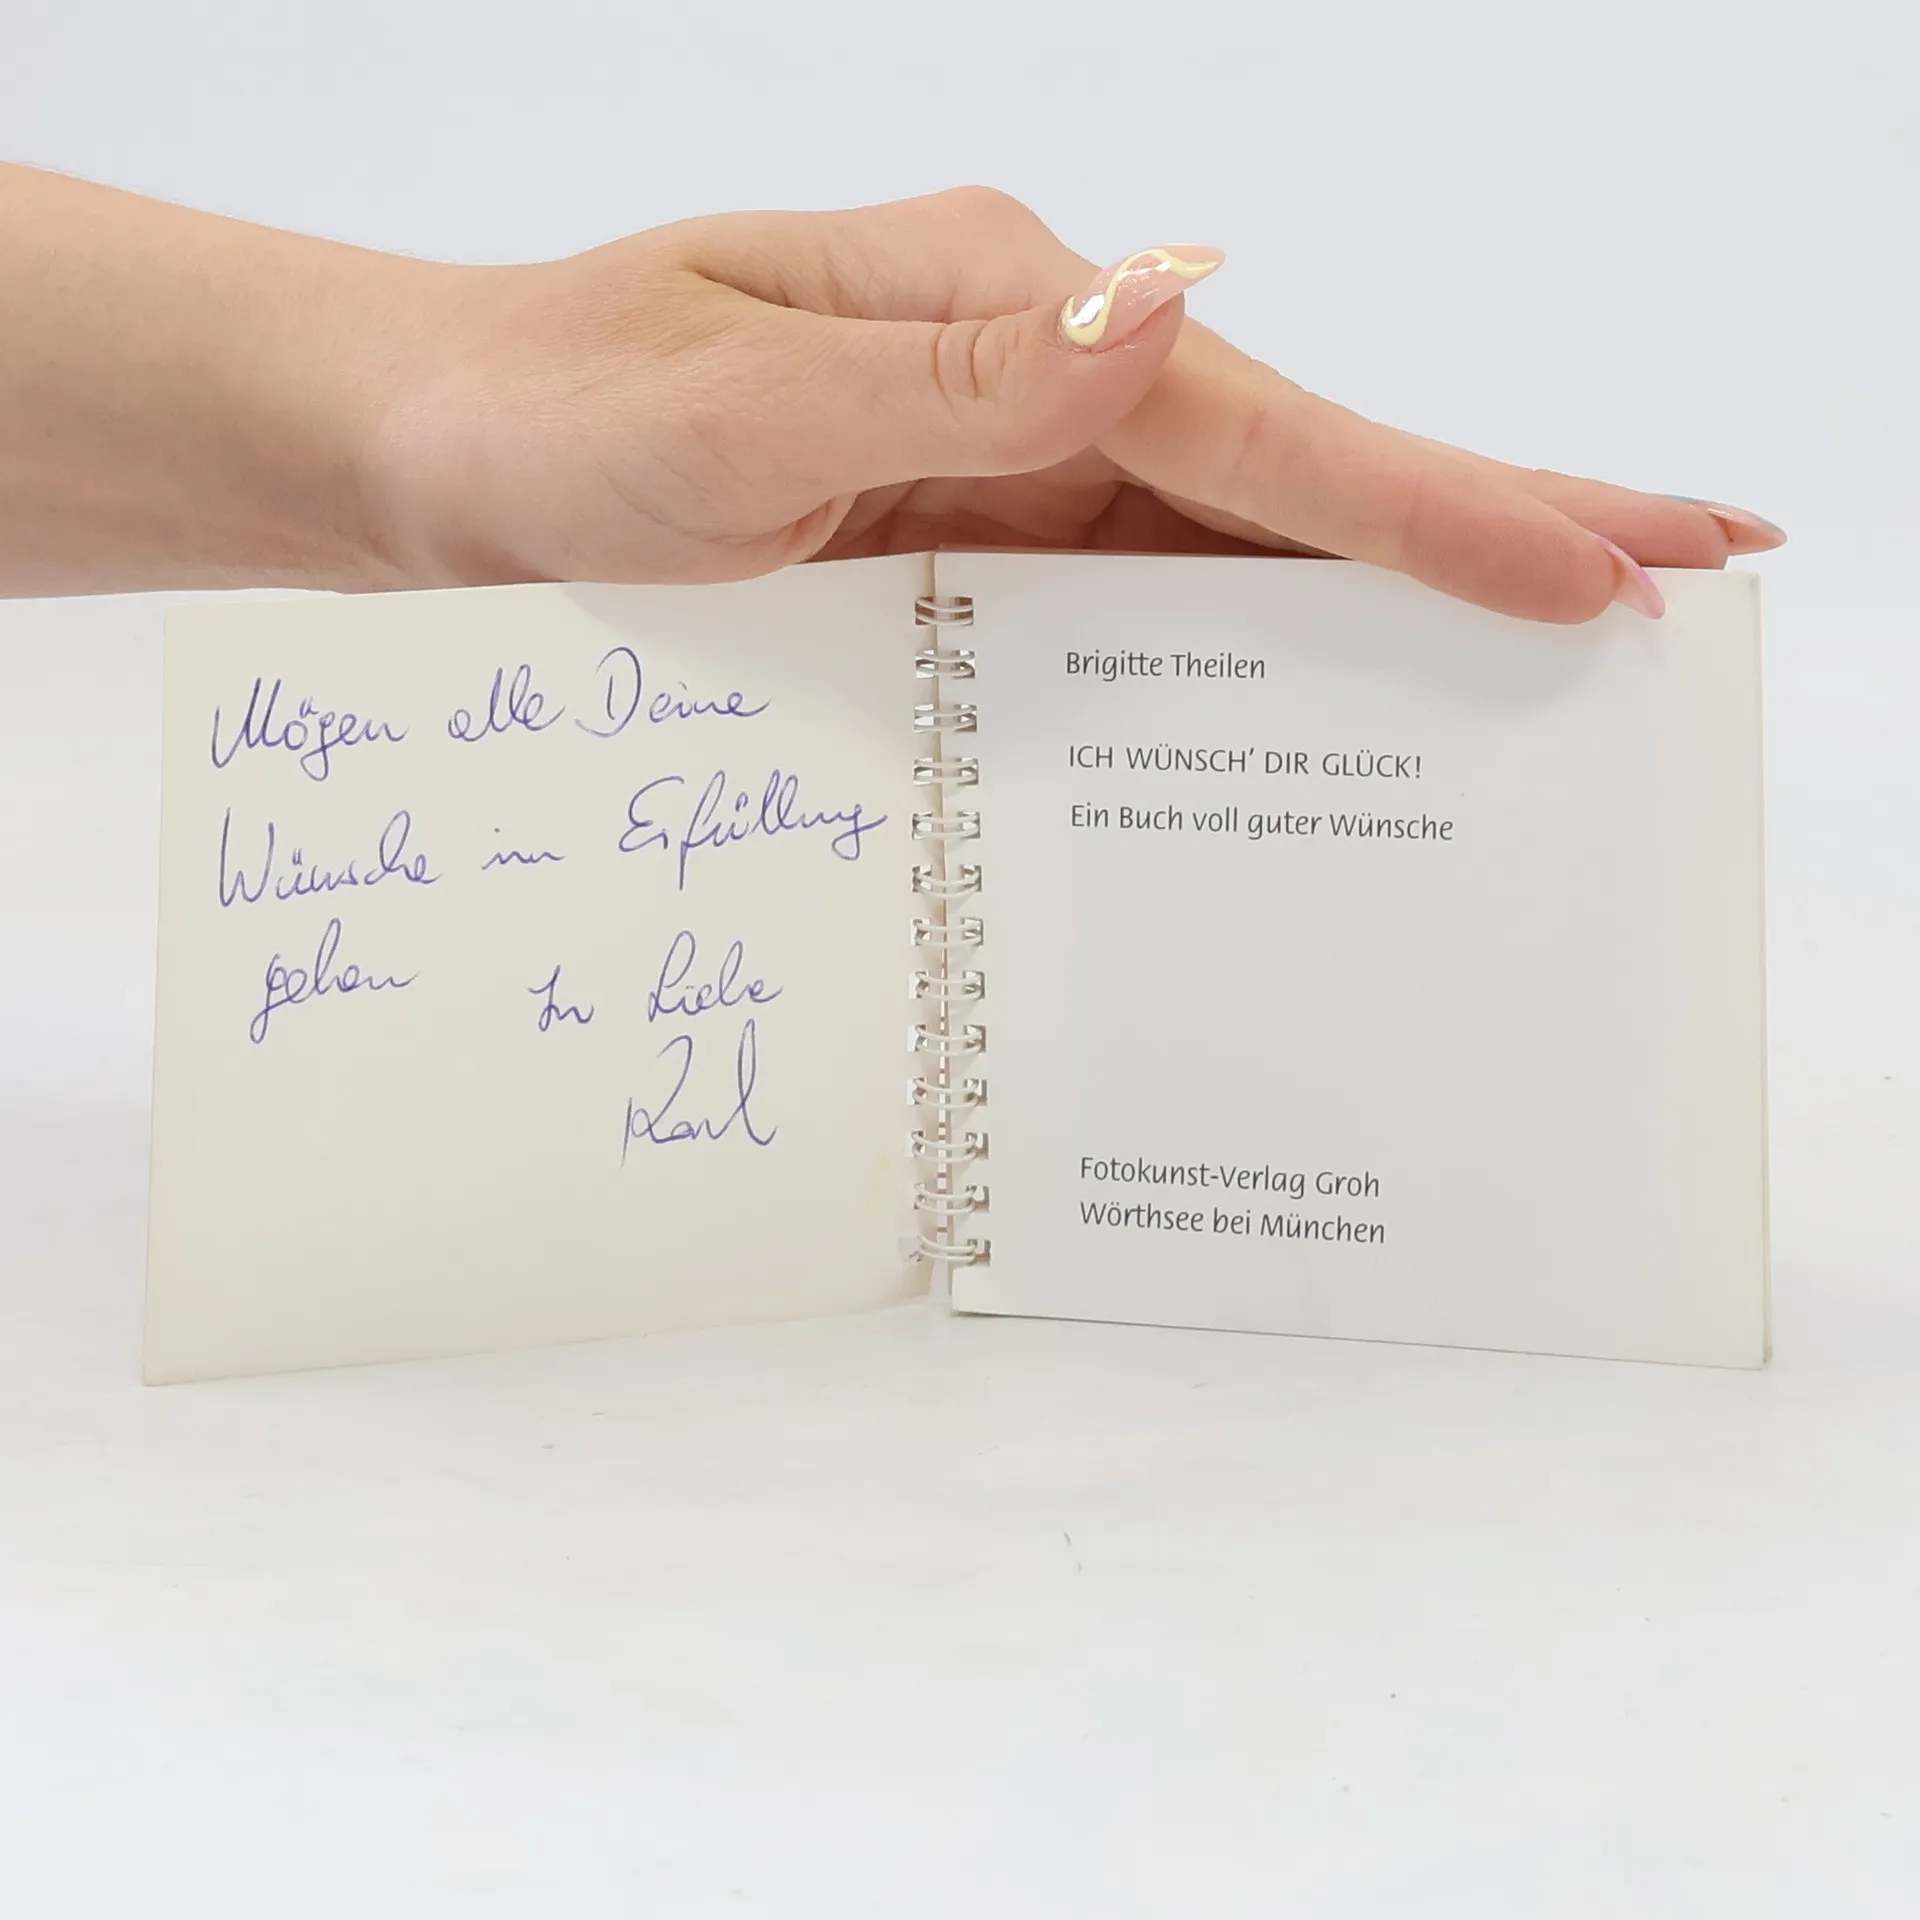 Mögen alle Deine
Wünsche in Erfüllung
gehen In Liebe
Karl
Brigitte Theilen
ICH WÜNSCH’ DIR GLÜCK!
Ein Buch voll guter Wünsche
Fotokunst-Verlag Groh
Wörthsee bei München